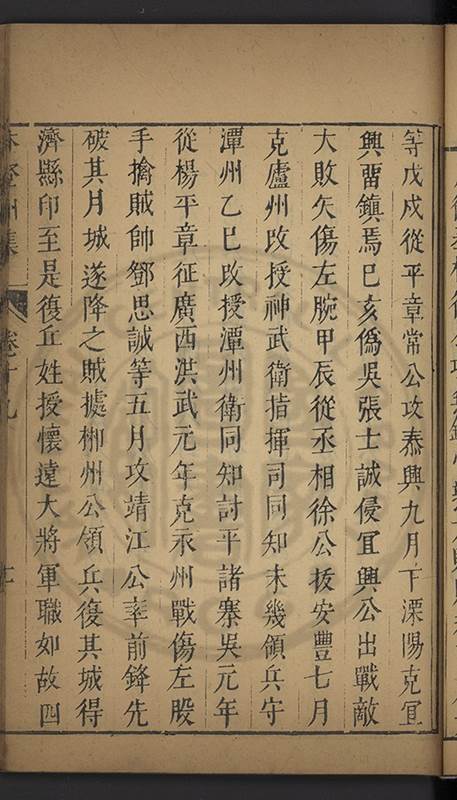 等戊戌從平章常公攻泰興九月下溧陽克冝
興畱鎮焉巳亥僞吳張士誠侵冝興公出戰敵
大敗矢傷左腕甲辰從丞相徐公拔安豐七月
克廬州改授神武衛指揮司同知未幾領兵守
潭州乙巳改授潭州衛同知討平諸寨吳元年
從楊平章征廣西洪武元年克永州戰傷左股
手擒賊帥鄧思誠等五月攻靖江公率前鋒先
破其月城遂降之賊據郴州公領兵復其城得
濟縣印至是復丘姓授懷遠大將軍職如故四
集 卷十九